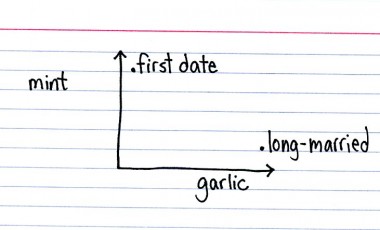 .first date
mint
.long-married
garlic